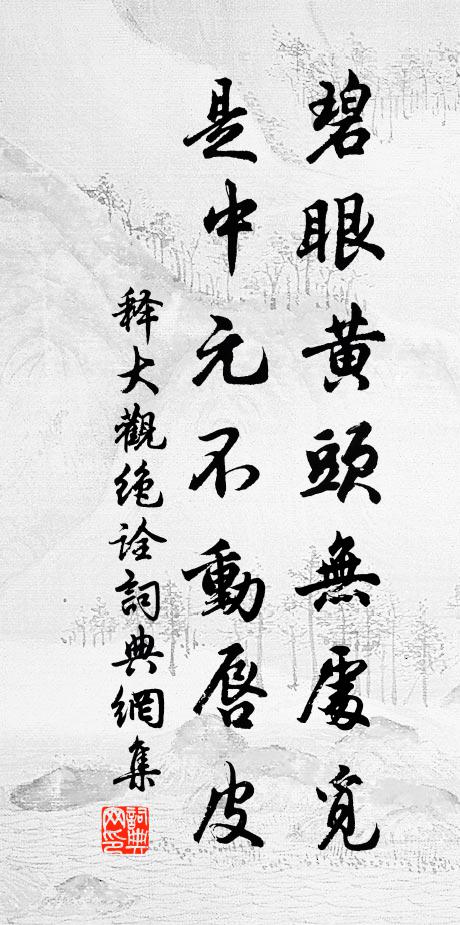 碧眼黃頭無處覓
是中元不動唇皮
释大觀绝诠詞典網集
詞典网印